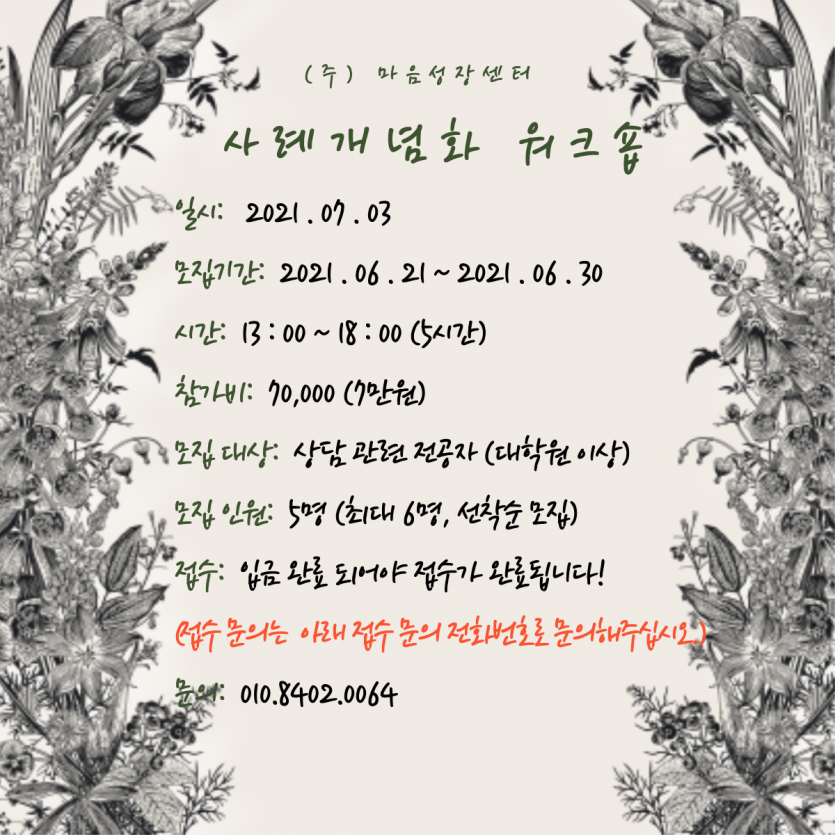 (주) 마음성장센터
사례개념화 워크숍
일시: 2021.07.03
모집기간: 2021.06.21~2021.06.30
시간: 13:00~18:00 (5시간)
참가비: 70,000 (7만원)
모집 대상: 상담 관련 전공자 (대학원 이상)
모집 인원: 5명 (최대 6명, 선착순 모집)
접수: 입금 완료 되어야 접수가 완료됩니다!
(접수 문의는 아래 접수 문의 전화번호로 문의해주십시오.)
문의: 010.8402.0064